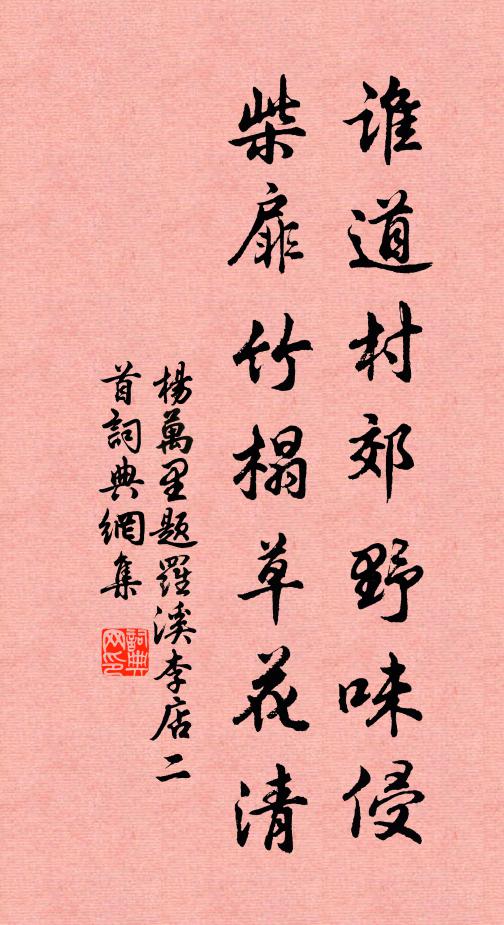 誰道村郊野味侵
柴扉竹榻草花清
楊萬里題羅溪李店二
首詞典網集
詞典
网印